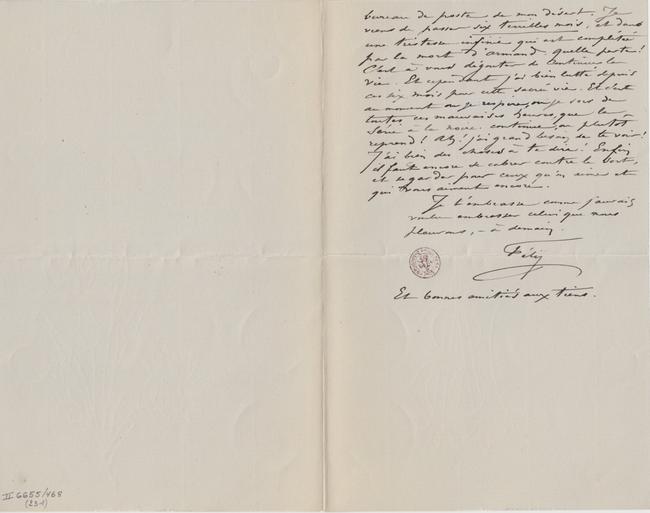 bureau de poste de mon désert. Je
viens de passer six terribles mois, et dans
une tristesse infinie qui est complétée
par la mort d'Armand, quelle perte!
C'est à vous dégouter de continuer la
vie. Et cependant j'ai bien lutté depuis
ces six mois pour cette sacrée vie. Et c'est
au moment ou je respire, ou je sors de
toutes ces mauvaises heures, que la
série à la noire continue, ou plutôt
reprend! Ah! j'ai grand besoin de te voir!
J'ai bien des choses à te dire! Enfin
il faut encore se cabrer contre le sort,
et se garder pour ceux qu'on aime et
qui vous aiment encore.
Je t'embrasse comme j'aurais
voulu embrasser celui que nous
pleurons, – à demain,
Fély
Et bonnes amitiés aux tiens.
II 6655/468
(23-1)